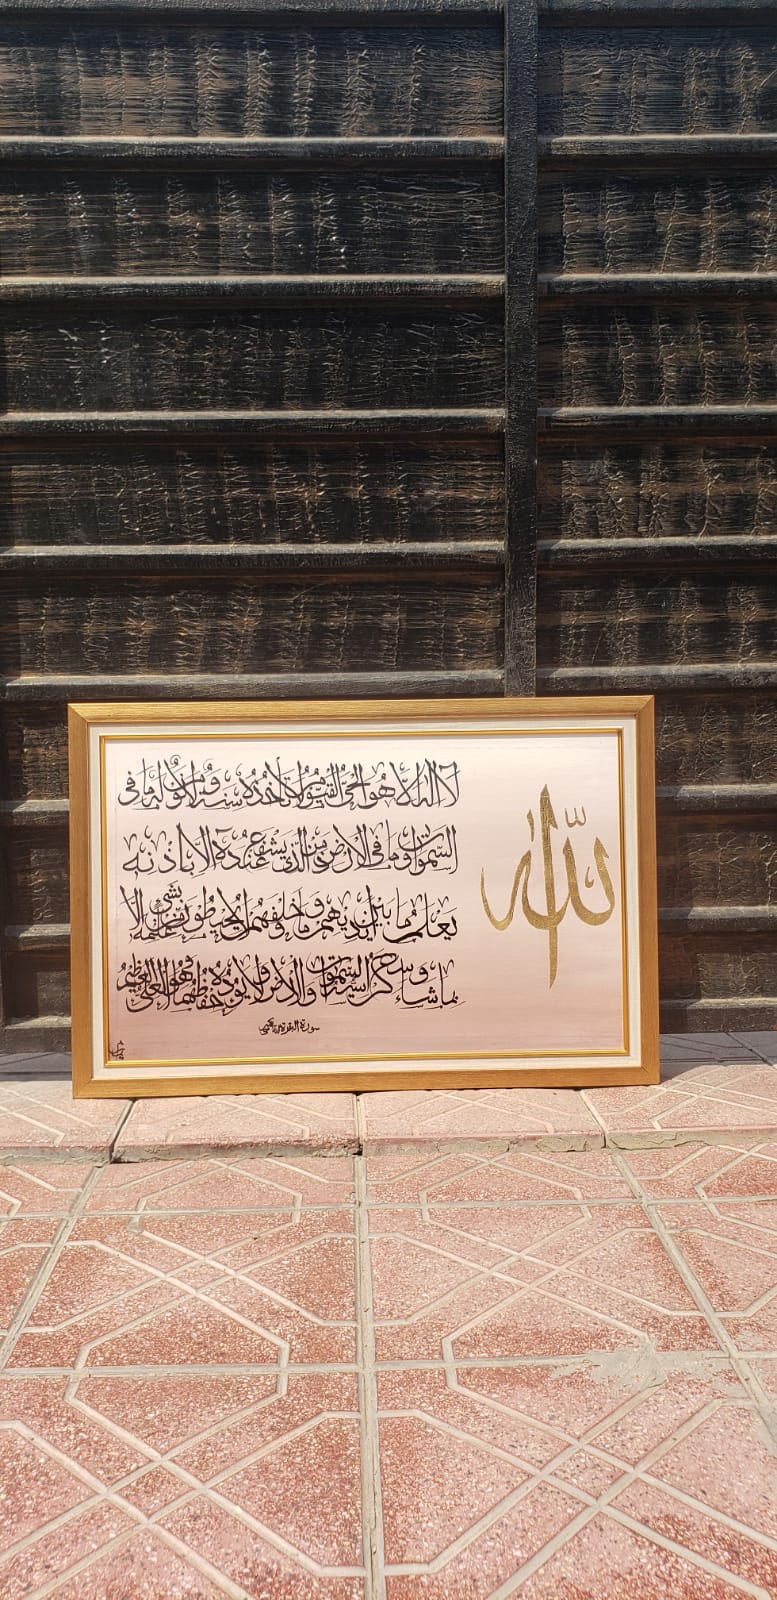 الله
لآ اله الا هو الحي القيوم لا تأخذه سنة ولا نوم له ما في
السموات وما في الارض من ذا الذي يشفع عنده الا باذنه
يعلم ما بين ايديهم وما خلفهم ولا يحيطون بشيء من علمه الا
بما شاء وسع كرسيه السموات والارض ولا يؤده حفظهما وهو العلي العظيم
سورة البقرة